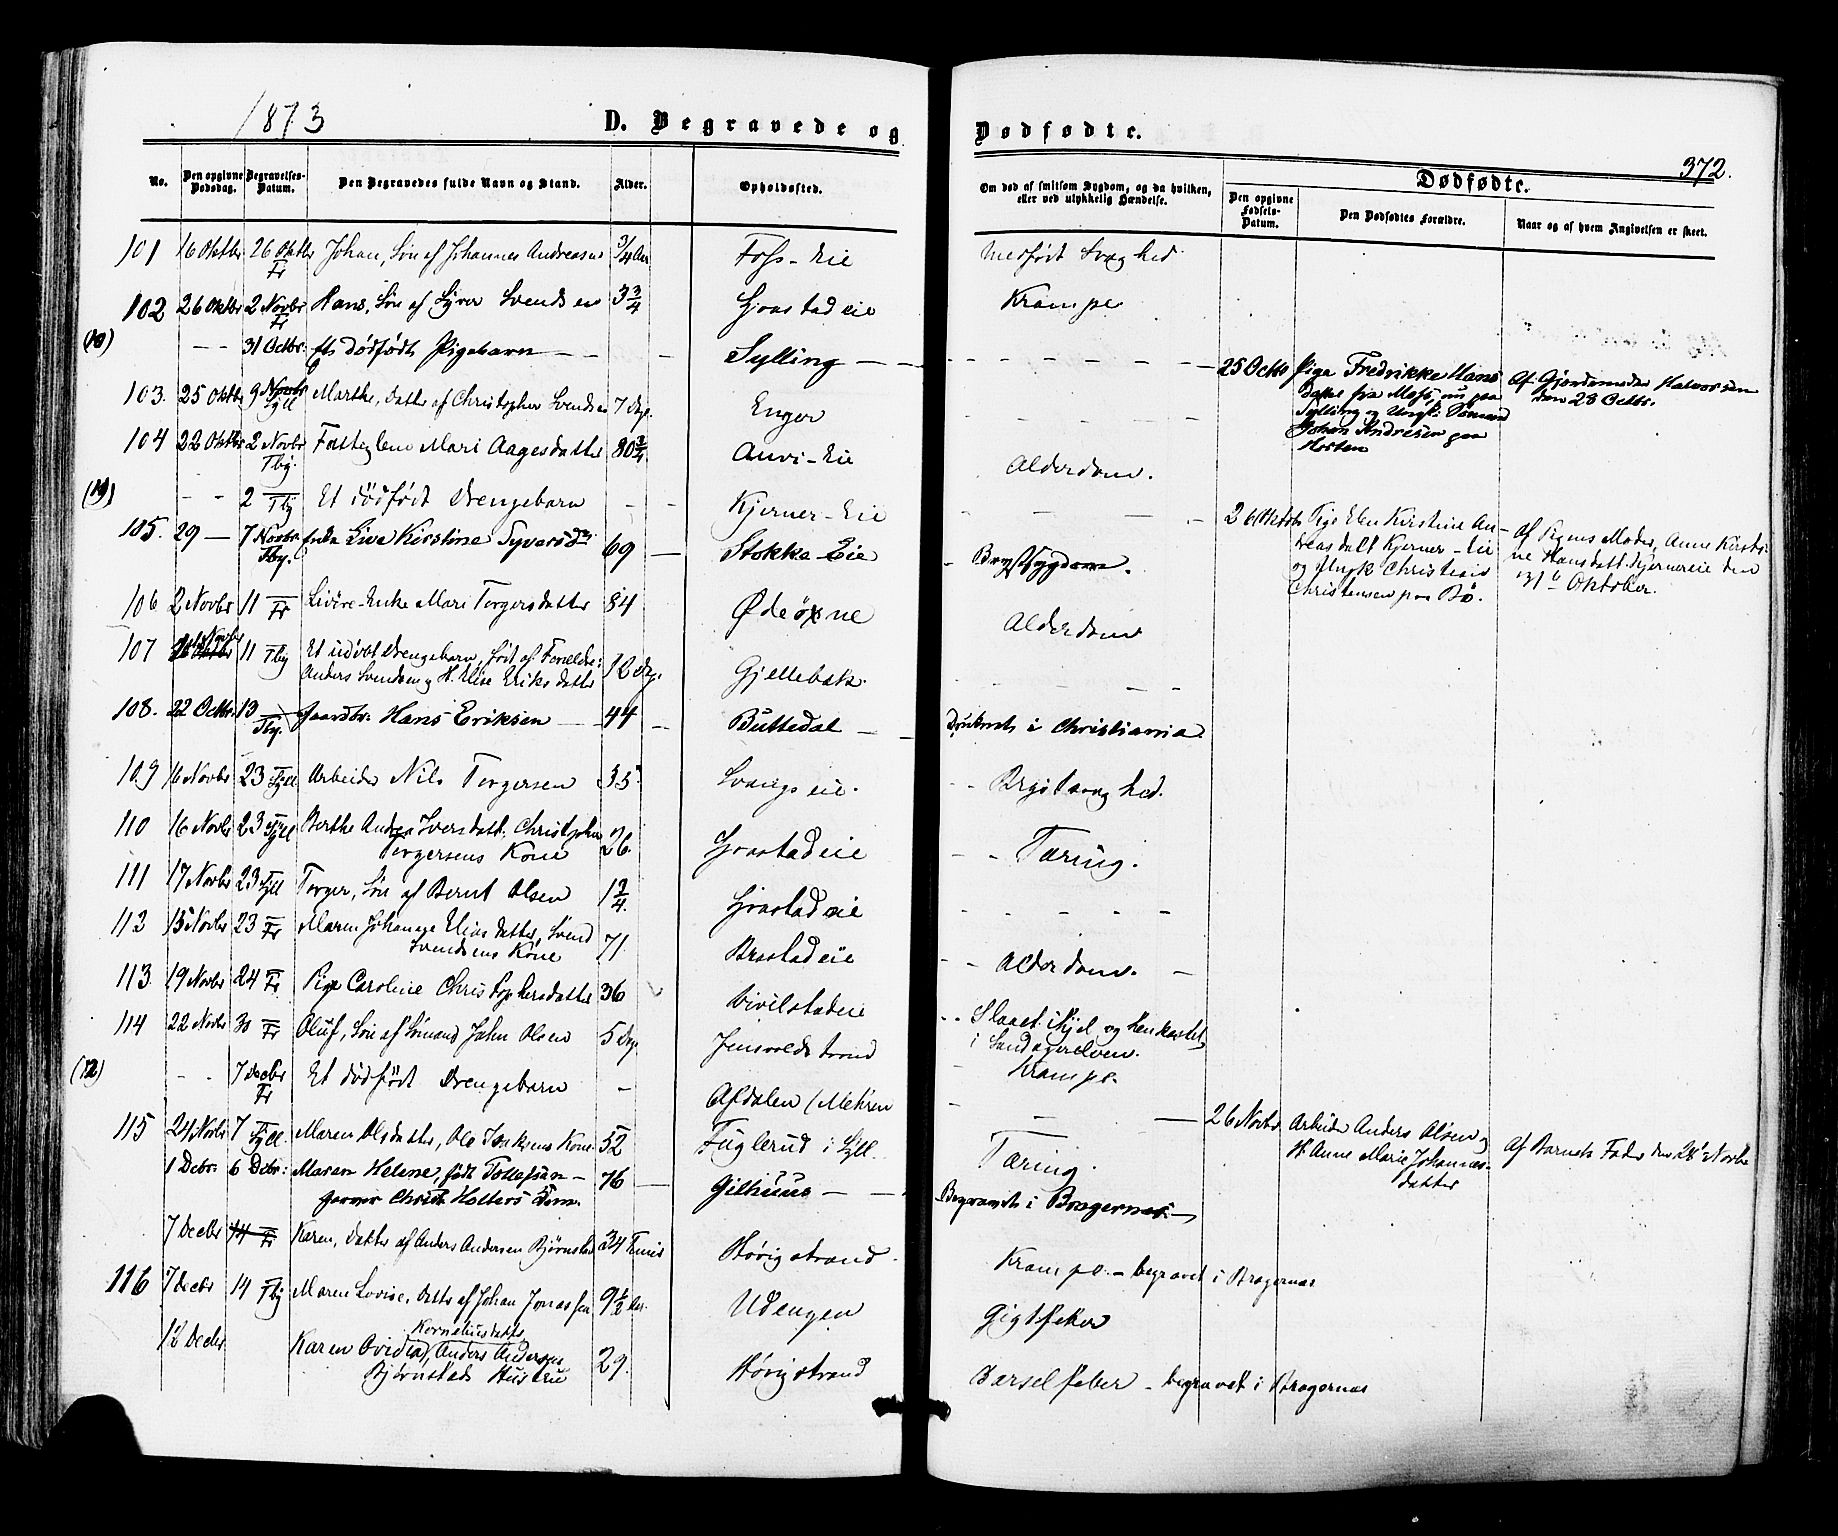 1873
D. Begravede og Dødfødte.
372.
No. Den opgivne Dødsdag. Begravelses-Datum. Den Begravedes fulde Navn og Stand. Alder. Opholdssted. Om død af smitsom Sygdom, og da hvilken, eller ved ulykkelig Hændelse. Dødfødte. Den opgivne Fødsels-Datum. Den Dødfødtes Forældre. Naar og af hvem Angivelsen er skeet.
101 16 Oktbr 26 Oktbr Fr Johan, Søn af Johannes Andreasen 3/4 Aar Foss-Eie Medfødt Svaghed
102 26 Oktbr 2 Novbr Fr Hans, Søn af Syver Svendsen 3 3/4 Gjrastadeie Krampe
(10) - - 31 Octbr: Et dødfødt Pigebarn - - - Sylling - - 25 Octbr Pige Fredrikke Hans
Datter fra Moss, nu paa
Sylling og Ungk. Sømand
Johan Andresen paa
Horten
Af Gjordemoder Halvorsen
den 28 Octbr.
103. 25 Oktbr 9 Novbr Syll Marthe, Datter af Christopher Svendsen 7 Dage. Enger - - - -
104 22 Oktbr 2 Novbr Tbg. Fattiglem Mari Aagesdatter 80 3/4 Auvi-Eie Alderdom.
(11) - - 2 — Tbg Et dødfødt Drengebarn - - Kjerner-Eie - - 26 Oktbr Pige Elen Kirstine An-
dreasdatt Kjerner-Eie
og Ungk Christian
Christensen paa Bø.
Af Pigens Moder, Anne Kirsti-
ne Hansdatt. Kjernereie den
31te Oktober.
105. 29 — 7 Novbr Tbg. Enke Live Kirstine Syversd. 69 — Stokke-Eie Brystsygdom.
106 2 Novbr 11 — Fr Enke Mari Torgersdatter 84 Ødeöxne Alderdom
107 Novbr 11 — Tbg Et udöbt Drengebarn, født af Forældre:
Anders Svendsen og H. Elise Eriksdatter 12 Dag. Gjellebæk. - - - -
108. 22 Octbr. 13 — Tbg. Gaardbr. Hans Eriksen — 44 — Buttedal — Druknet i Christiania
109 16 Novbr 23 — Syll Arbeider Nils Torgersen 35 Svangseie. - - Brystsvaghed.
110 16 Novbr 23 — Syll Berthe Andrea Iversdatt. Christopher
Torgersens Kone 26. Gjrastadeie - - Tæring.
111 17 Novbr 23 — Syll Torger, Søn af Bernt Olsen 1 3/4. Gjrastadeie - - - - -
112 15 Novbr 23 — Fr Maren Johanne Eliasdatter, Svend
Svendsens Kone 71 Brastadeie - - Alderdom. -
113. 19 Novbr 24 — Fr Pige Caroline Christophersdatter 36 Vivilstadeie - - Slaaet ihjel og henkastet
i Sandagerelven.
114 22 Novbr 30 — Fr Oluf, Søn af Sömand John Olsen 5 Dage. Jensvoldstrand - Krampe.
(12) - - 7 Decbr Fr Et dødfødt Drengebarn - Afdalen (Mehren - - - 26 Novbr Arbeider Anders Olsen og
H. Anne Marie Johannes-
datter
Af Barnets Fader den 28 Novbr
115 24 Novbr 7 — Syll Maren Olsdatter, Ole Kone 52 Fuglerud i Syll. Tæring.
1 Debr: 6 Debr: Maren Helene, født Tollefsen —
Christ Holters 76 — Gilhuus — - Begravet i Bragernæs. —
7 Decbr 14 — Fr Karen, Datter af Anders Andersen Bjørnstad 34 Timer Høvigstrand. Krampe. - begravet i Bragernæs
116 7 Decbr 14 — Tbg Maren Lovise, Datter af Johan Jonassen 9 1/2 Aar. Udengen Gigtfeber
12 Decbr Korneliusdatts
Karen Ovidia, Anders Andersen
Bjørnstads Hustru 29. Høvigstrand Barselfeber - begravet i Bragernæs